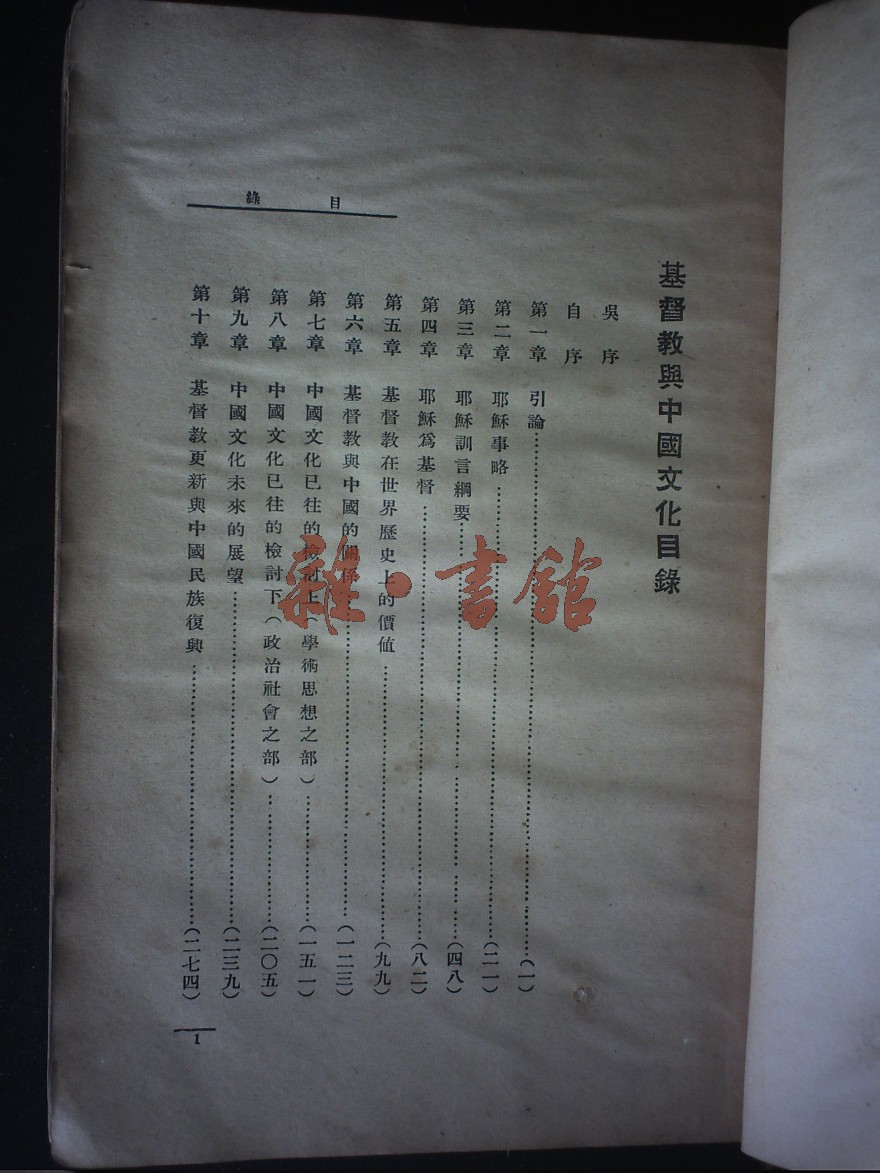 目錄
基督教與中國文化目錄
吳序
自序
第一章 引論……(一)
第二章 耶穌事略……(二一)
第三章 耶穌訓言綱要……(四八)
第四章 耶穌爲基督……(八二)
第五章 基督教在世界歷史上的價値……(九九)
第六章 基督教與中國的關係……(一二三)
第七章 中國文化已往的檢討上(學術思想之部)……(一五一)
第八章 中國文化已往的檢討下(政治社會之部)……(二〇五)
第九章 中國文化未來的展望……(二三九)
第十章 基督教更新與中國民族復興……(二七四)
1
雜·書館